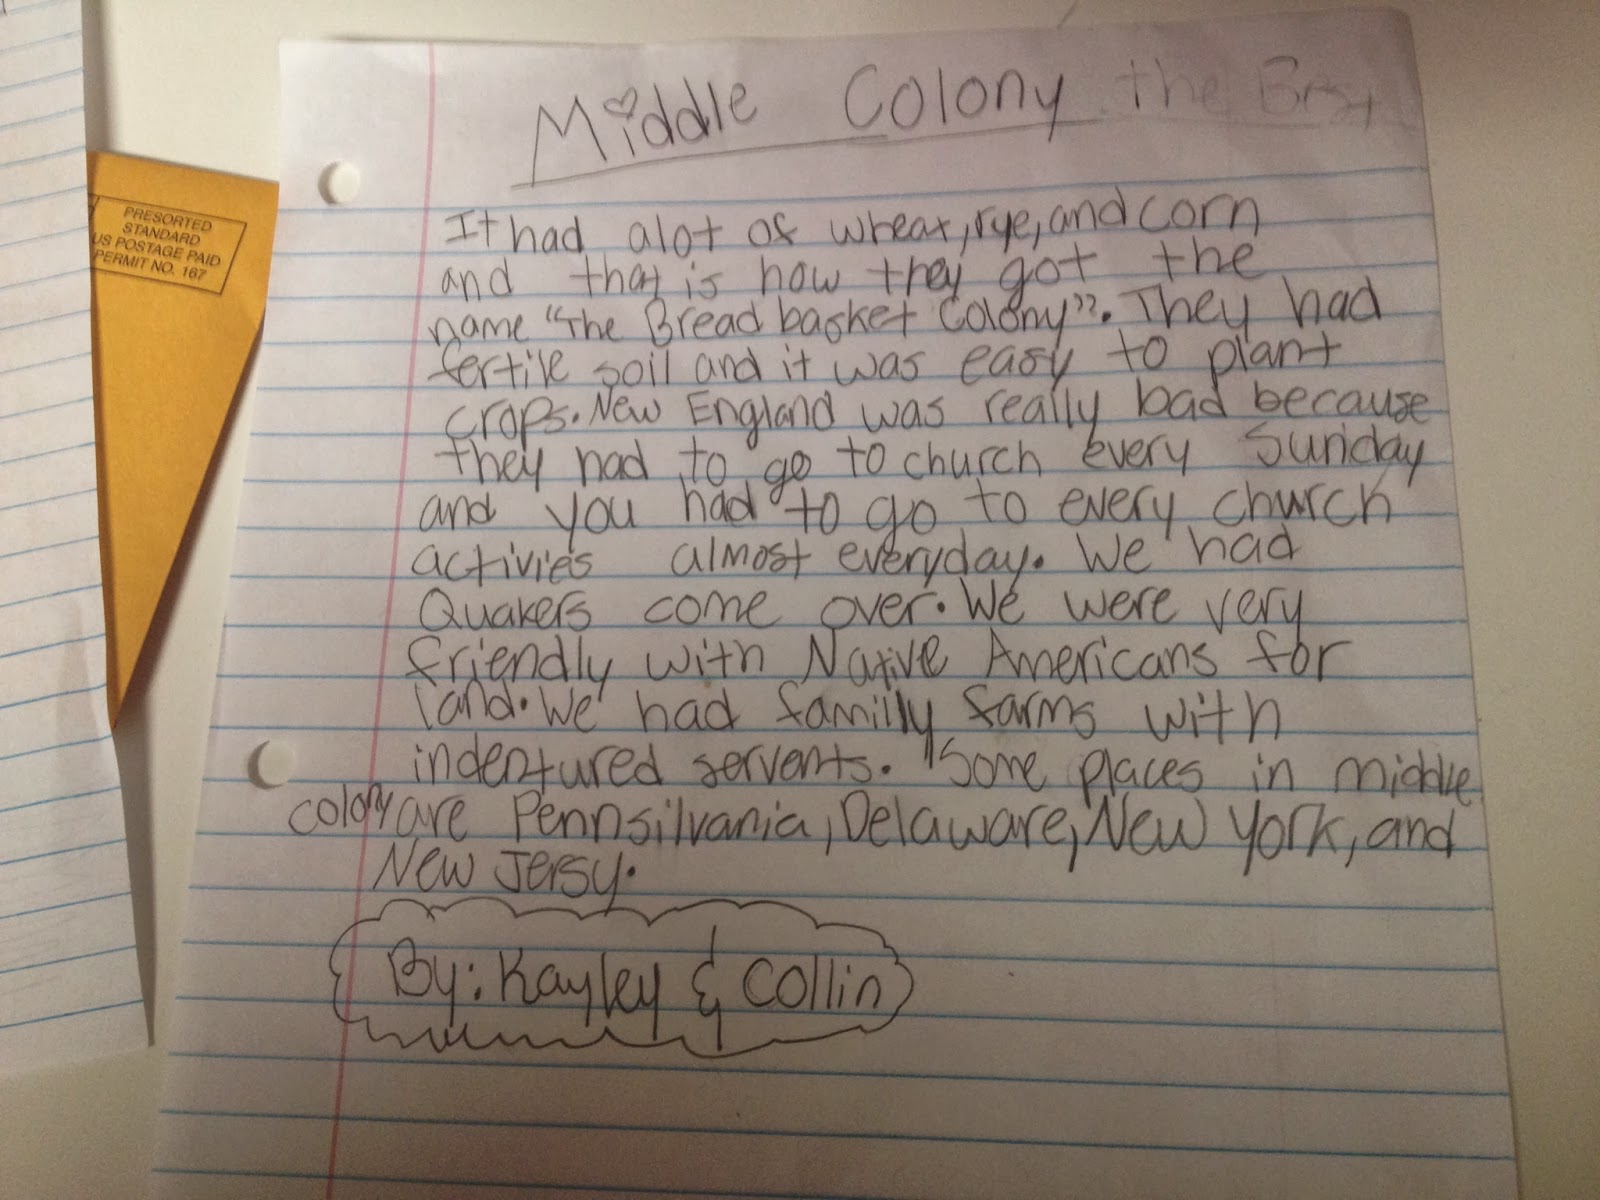 PRESORTED
STANDARD
US POSTAGE PAID
PERMIT NO. 167
Middle Colony the Best
It had alot of wheat, rye, and corn
and that is how they got the
name "The Bread basket Colony". They had
fertile soil and it was easy to plant
crops. New England was really bad because
they had to go to church every Sunday
and you had to go to every church
activies almost everyday. We had
Quakers come over. We were very
friendly with Native Americans for
land. We had familly farms with
indentured servents. Some places in middle
colony are Pennsilvania, Delaware, New York, and
New Jersy.
By: Kayley & Collin